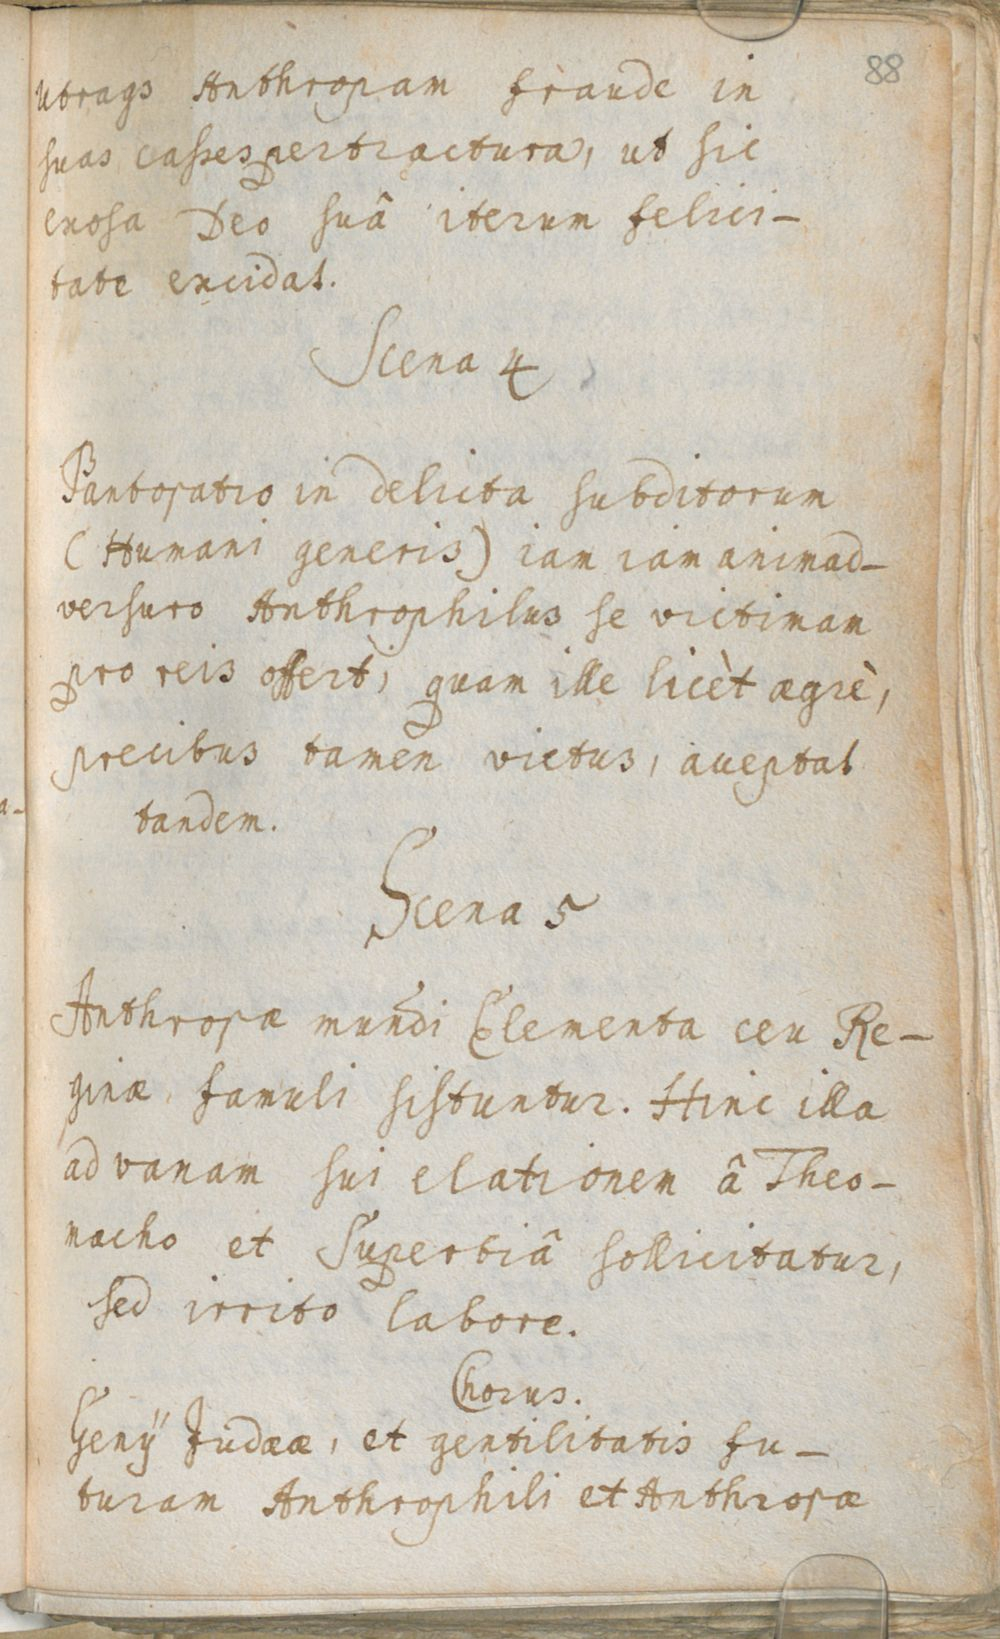 88
utraqꝫ Anthropam fraude in
suas casses pertractura, ut sic
exosa Deo suâ iterum felici-
tate excidat.
Scena 4
Pantopatro in delicta subditorum
(Humani generis) iam iam animad-
versuro Anthrophilus se victimam
pro reis offert, quam ille licèt ægrè,
precibus tamen victus, acceptat
tandem.
Scena 5
Anthropæ mundi Elementa ceu Re-
ginæ famuli sistuntur. Hinc illa
ad vanam sui elationem â Theo-
macho et Superbiâ sollicitatur,
sed irrito labore.
Chorus.
Genÿ Judææ, et gentilitatis fu-
turam Anthrophili et Anthropæ